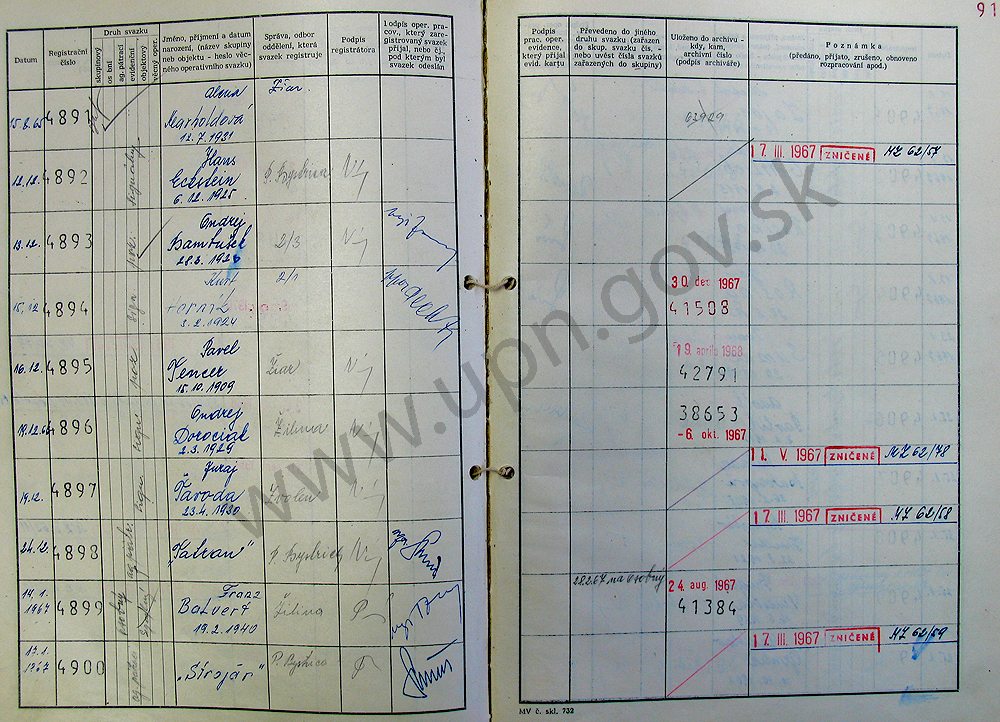 91
Datum
Registrační číslo
Druh svazku
skupinový
osobní
ag. pátrací
evidenční
objektový
věcný oper.
Jméno, příjmení a datum
narození, (název skupiny
neb objektu - heslo věc-
ného operativního svazku)
Správa, odbor
oddělení, která
svazek registruje
Podpis
registrátora
podpis oper. pra-
cov., který zare-
gistrovaný svazek
přijal, neb čj.,
pod kterým byl
svazek odeslán
Podpis
prac. oper.
evidence,
který přijal
evid. kartu
Převedeno do jiného
druhu svazku (zařazen
do skup. svazku čís. -
nebo uvést čísla svazků
zařazených do skupiny)
Uloženo do archivu -
kdy, kam,
archivní číslo
(podpis archiváře)
Poznámka
(předáno, přijato, zrušeno, obnoveno
rozpracování apod.)
4891 Alena
Marholdová
12.7.1931
Žiar.
02929
17. III. 1967 ZNIČENÉ NZ 62/57
12.12. 4892 Hans
Eckstein
6.12.1925
B. Bystrica
13.12. 4893 Ondrej
Bambušek
28.3.1926
2/3
15.12 4894 Kurt
3.2.1924
2/1
30. dec 1967
41508
16.12. 4895 Pavel
Fencer
15.10.1909
Žiar
19. apríla 1968
42791
4896 Ondrej
Dorociak
2.3.1929
Žilina
38653
-6. okt. 1967
11. V. 1967 ZNIČENÉ NZ 62/78
19.12. 4897 Juraj
Ťavoda
23.4.1930
Zvolen
17. III. 1967 ZNIČENÉ NZ 62/58
24.12 4898 "Tatran"
B. Bystrica
14.1.
1967 4899 Franz
Balvert
19.2.1940
Žilina
28.2.67 na osobný
24. aug. 1967
41384
17. III. 1967 ZNIČENÉ NZ 62/59
17.1.
1967 4900 "Strojár"
B. Bystrica
MV č. skl. 732
www.upn.gov.sk